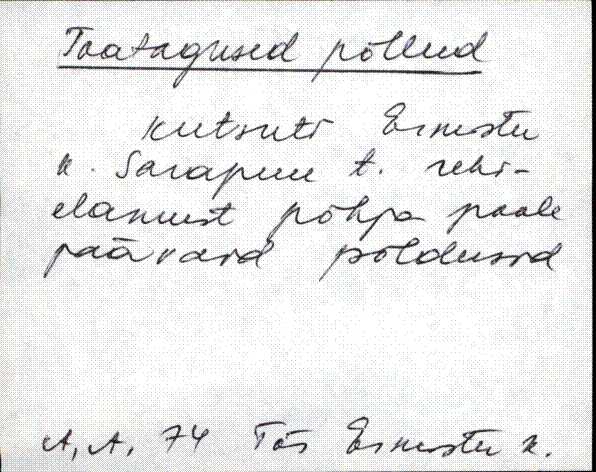 Toatagused põllud
kutsuti Ernestu
k. Sarapuu t. rehi-
elamust põhja poole
jäävaid põldusid
A, A. 74 Tõs Ernestu k.